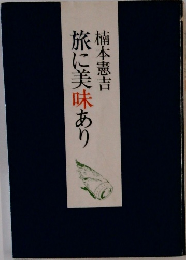 楠本憲吉
旅に美味あり